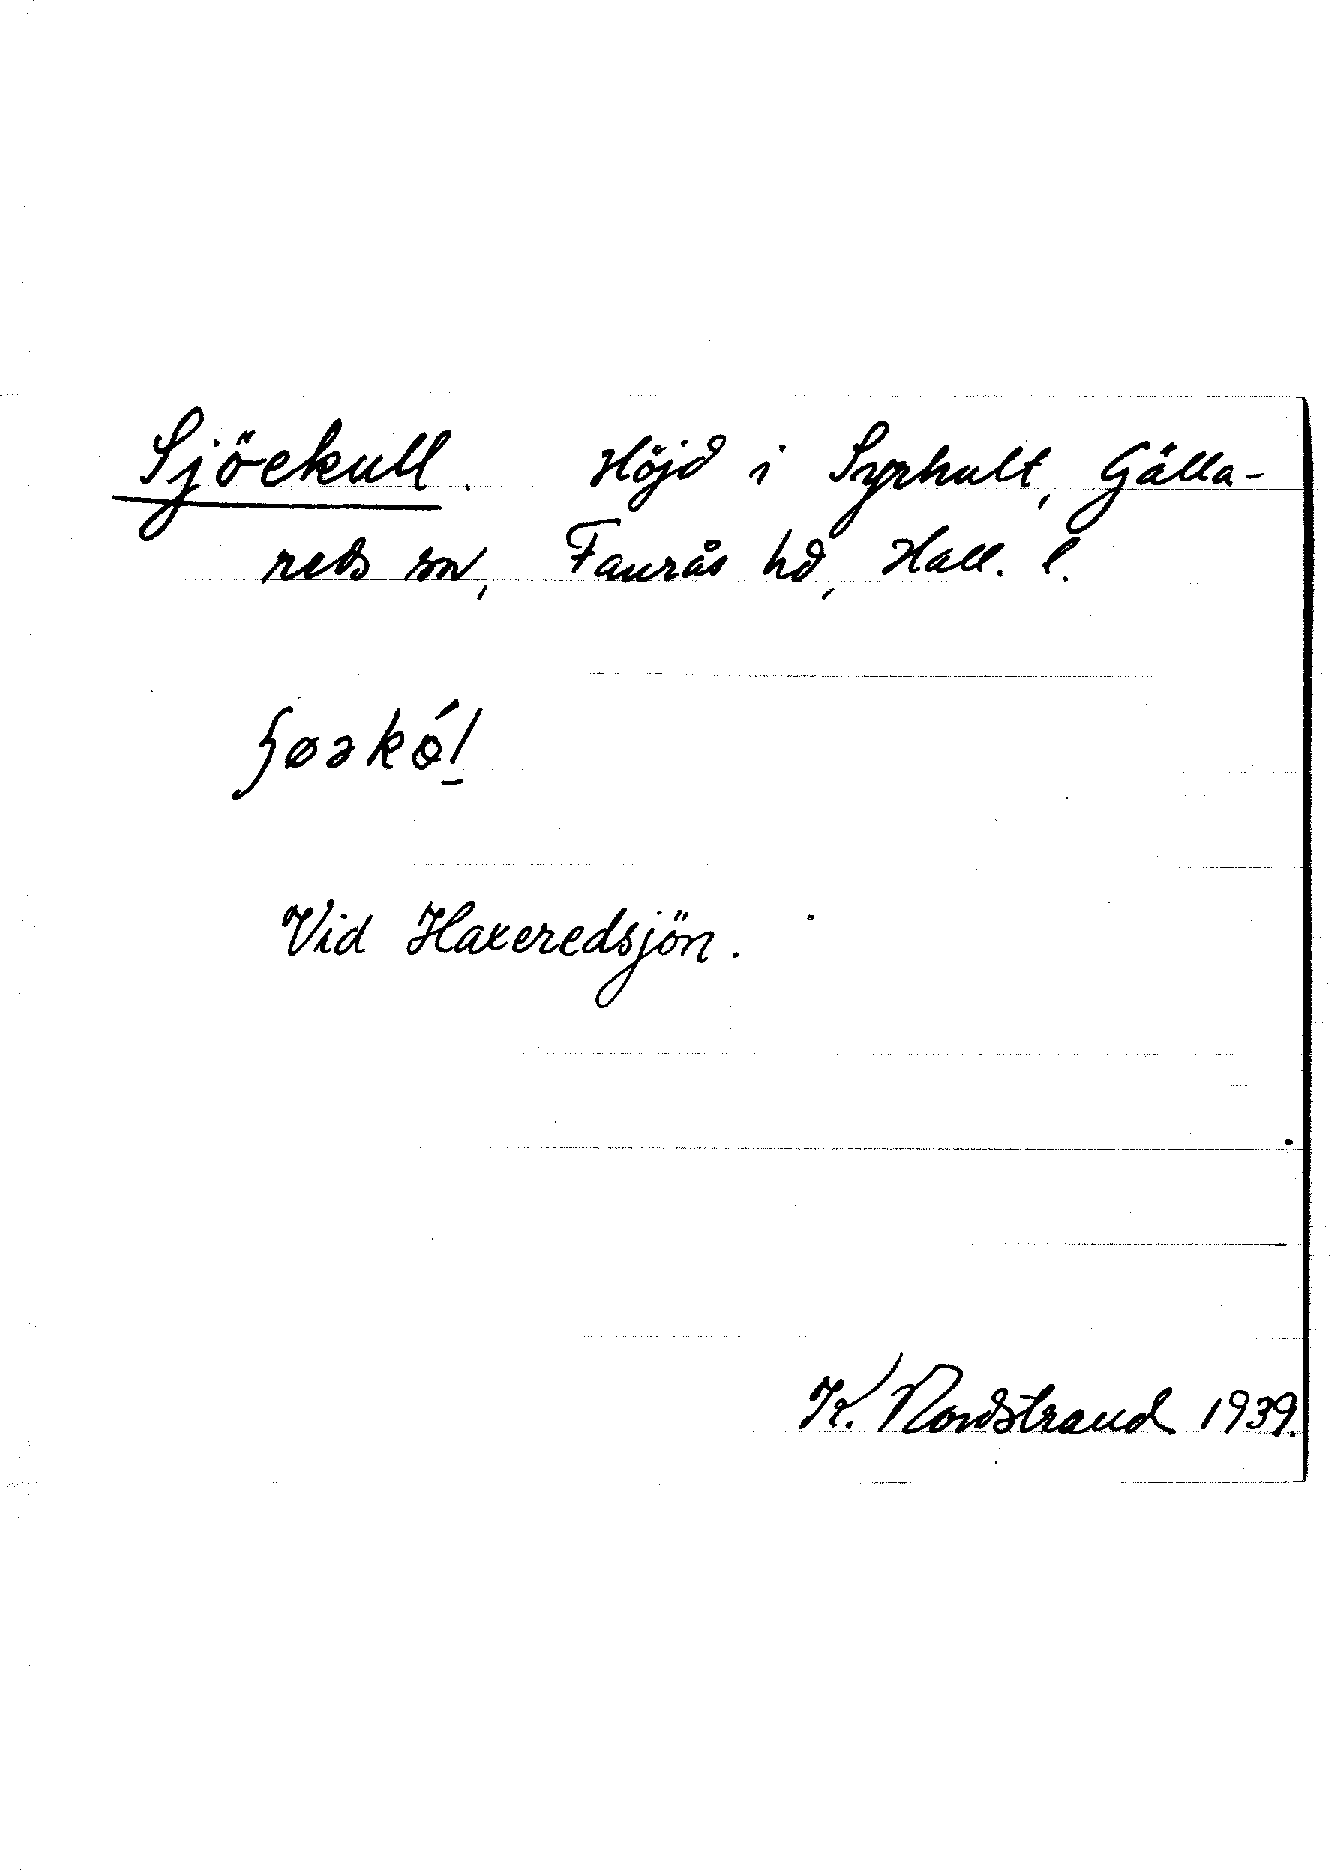 Sjöekull. Höjd i Syrhult, Gälla-
reds sn, Faurås hd, Hall. l.
Vid Haxeredsjön.
K. Nordstrand 1939.